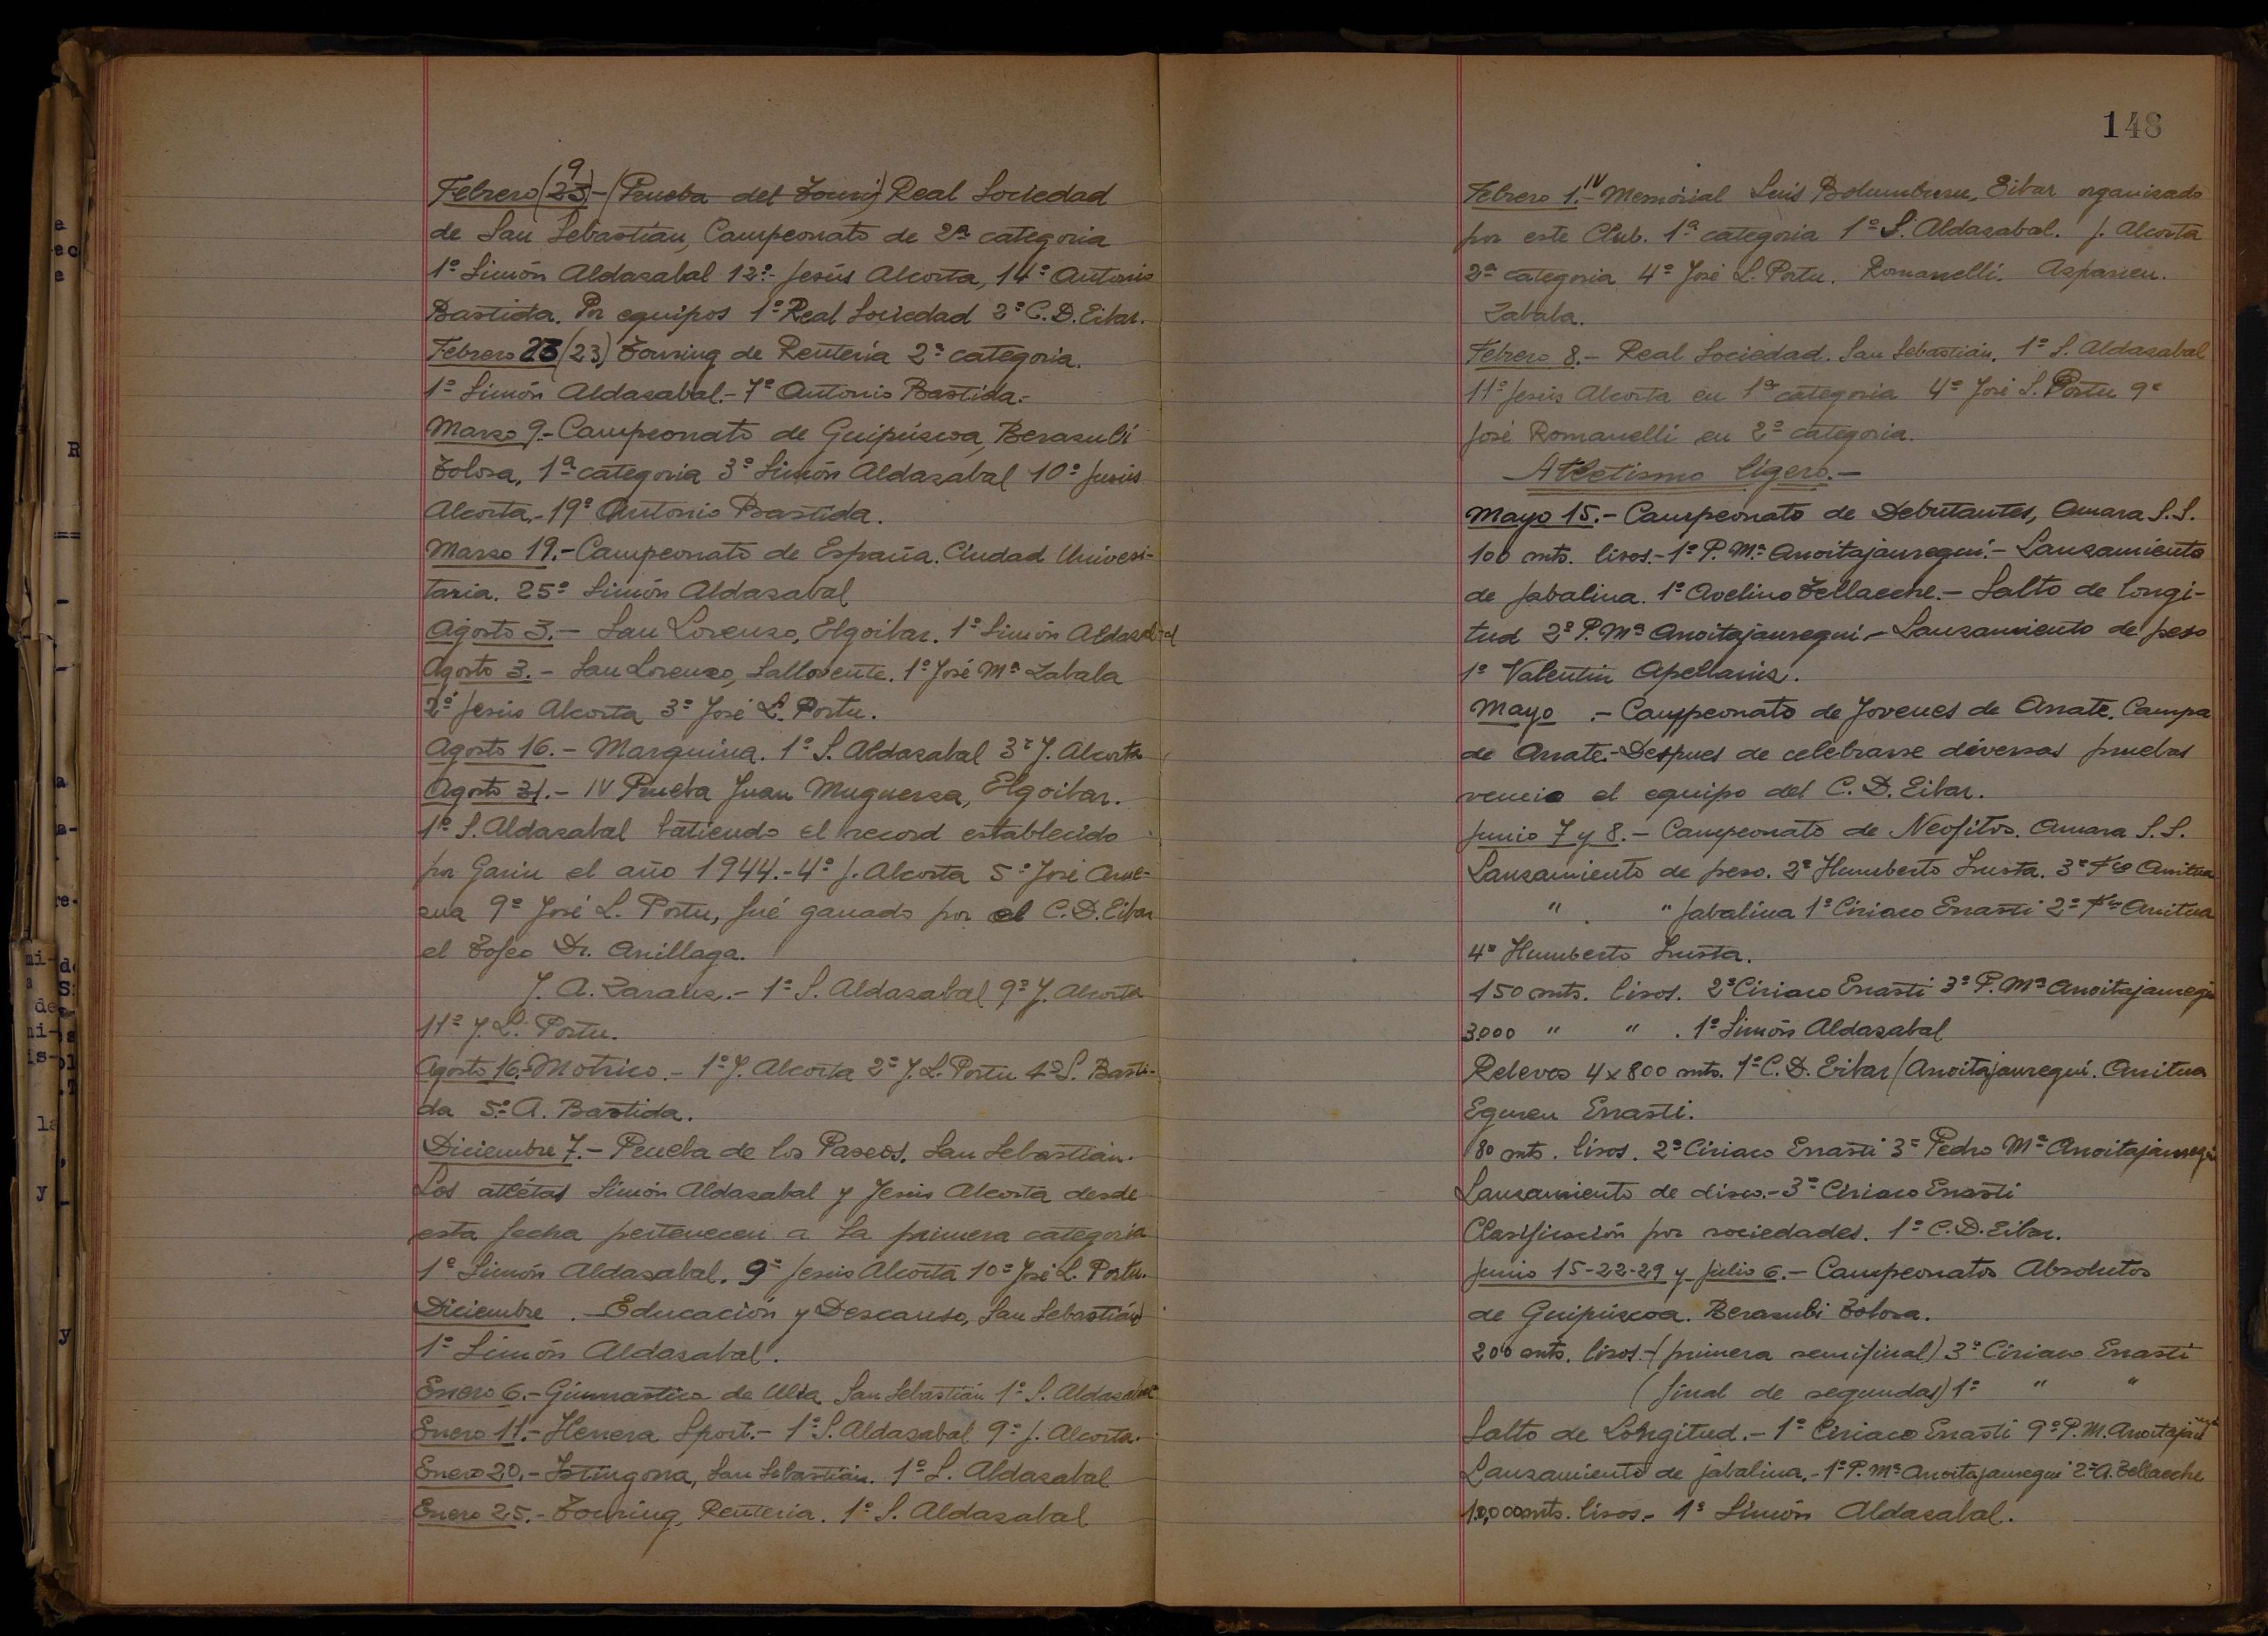 9
Febrero (23)-(Prueba del Touri) Real Sociedad
de San Sebastián, Campeonato de 2ª categoria
1º Simón Aldazabal 12º- Jesús Alcorta, 14º Antonio
Bastida. Por equipos 1º Real Sociedad 2º C.D. Eibar.
Febrero 23 (23) Touring de Renteria 2ª categoria.
1º Simón Aldazabal.- 7º Antonio Bastida.-
Marzo 9.- Campeonato de Guipúzcoa, Berazubi
Tolosa, 1ª categoria 3º Simón Aldazabal 10º Jesús
Alcorta.- 19º Antonio Bastida.
Marzo 19.- Campeonato de España. Ciudad Univesi-
taria. 25º Simón Aldazabal
Agosto 3.- San Lorenzo, Elgoibar. 1º Simón Aldazabal
Agosto 3.- San Lorenzo, Sallovente. 1º José Mª Zabala
2º Jesús Alcorta 3º José L. Portu.
Agosto 16.- Marquina. 1º S. Aldazabal 3º J. Alcorta
Agosto 31.- IV Prueba Juan Muguerza, Elgoibar.
1º S. Aldazabal batiendo el record establecido
por Garin el año 1944.- 4º J. Alcorta 5º José Ame-
zua 9º José L. Portu, fué ganado por el C.D. Eibar
el Tofeo Dr. Arillaga.
J. A. Zarauz.- 1º S. Aldazabal 9º J. Alcorta
11º J. L. Portu.
Agosto 16.- Motrico.- 1º J. Alcorta 2º J. L. Portu 4º S. Basti-
da 5º A. Bastida.
Diciembre 7.- Prueba de los Paseos. San Sebastián.
Los atlétas Simón Aldazabal y Jesús Alcorta desde
esta fecha pertenecen a la primera categoria
1º Simón Aldazabal. 9º Jesús Alcorta 10º José L. Portu.
Diciembre . Educación y Descanso, San Sebastián
1º Simón Aldazabal.
Enero 6.- Gimnastica de Ulia San Sebastián 1º S. Aldazabal
Enero 11.- Herrera Sport.- 1º S. Aldazabal 9º J. Alcorta.
Enero 20.- Istingorra, San Sebastián. 1º S. Aldazabal
Enero 25.- Touring, Renteria. 1º S. Aldazabal
148
Febrero 1.- IV Memorial Luis Bolumburu, Eibar organizado
por este Club. 1ª categoria 1º S. Aldazabal. J. Alcorta
2ª categoria 4º José L. Portu. Romanelli. Azparren.
Zabala.
Febrero 8.- Real Sociedad. San Sebastián. 1º S. Aldazabal
11º Jesús Alcorta en 1ª categoria 4º José L. Portu 9º
José Romanelli en 2ª categoria.
Atletismo ligero.-
Mayo 15.- Campeonato de Debutantes, Amara S.S.
100 mts. lisos.- 1º P. Mª Anoitajauregui.- Lanzamiento
de jabalina. 1º Avelino Tellaeche.- Salto de longi-
tud 2º P. Mª Anoitajauregui.- Lanzamiento de peso
1º Valentin Apellaniz.
Mayo .- Campeonato de Jovenes de Arrate. Campa
de Arrate.- Despues de celebrarse diversas pruebas
vencio el equipo del C. D. Eibar.
Junio 7 y 8.- Campeonato de Neofitos. Amara S.S.
Lanzamiento de peso. 2º Humberto Irusta. 3º Fco Anitua
" " jabalina 1º Ciriaco Errasti 2º Fco Anitua
4º Humberto Irusta.
150 mts. lisos. 2º Ciriaco Errasti 3º P. Mª Anoitajauregui
3000 " " . 1º Simón Aldazabal
Relevos 4x800 mts. 1º C. D. Eibar (Anoitajauregui. Anitua
Eguren Errasti.
80 mts. lisos. 2º Ciriaco Errasti 3º Pedro Mª Anoitajauregui
Lanzamiento de disco.- 3º Ciriaco Errasti
Clasificación por sociedades. 1º C. D. Eibar.
Junio 15-22-29 y julio 6.- Campeonatos Absolutos
de Guipúzcoa. Berazubi Tolosa.
200 mts. lisos.- (primera semifinal) 3º Ciriaco Errasti
(final de segundas) 1º " "
Salto de Longitud.- 1º Ciriaco Errasti 9º P. M. Anoitajauregui
Lanzamiento de jabalina.- 1º P. Mª Anoitajauregui 2º A. Tellaeche
10,000 mts. lisos.- 1º Simón Aldazabal.